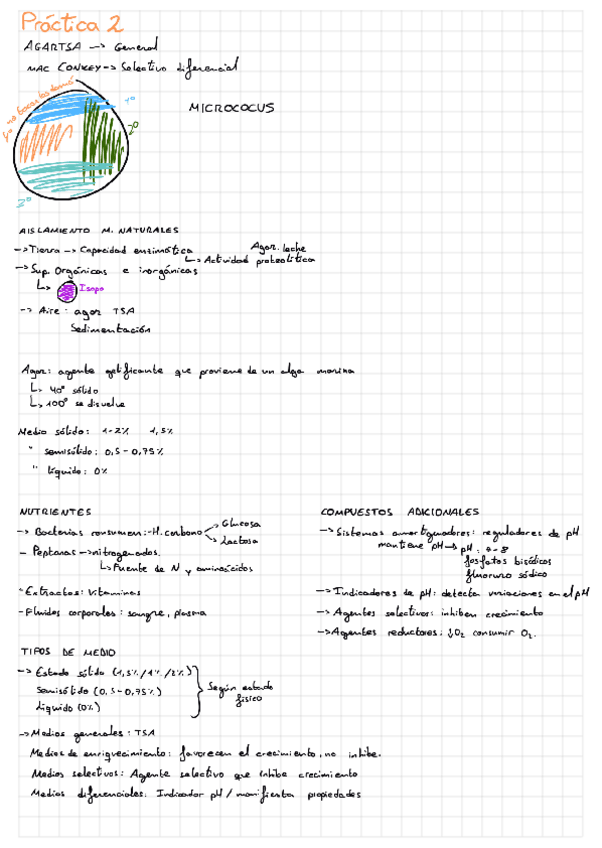 Práctica 2
AGAR TSA -> General
MAC CONKEY -> Selectivo diferencial
1º
2º
3º
MICROCOCUS
AISLAMIENTO M. NATURALES
-> Tierra -> Capacidad enzimática
Agar. leche
-> Actividad proteolítica
-> Sup. Orgánicas e inorgánicas
Isopo
-> Aire: agar TSA
Sedimentación
Agar: agente gelificante que proviene de un alga marina
40º sólido
100º se disuelve
Medio sólido: 1-2% 1,5%
" semisólido: 0,5-0,75%
" líquido: 0%
NUTRIENTES
-> Bacterias consumen: H. carbono
Glucosa
Lactosa
- Peptonas -> nitrogenados.
Fuente de N y aminoácidos
- Extractos: Vitaminas
- Fluidos corporales: sangre, plasma
COMPUESTOS ADICIONALES
-> Sistemas amortiguadores: reguladores de pH
mantiene pH -> pH: 4-8
fosfatos bisódicos
fluoruro sódico
-> Indicadores de pH: detectar variaciones en el pH
-> Agentes selectivos: inhiben crecimiento
-> Agentes reductores: ↓O2 consumir O2.
TIPOS DE MEDIO
-> Estado sólido (1,5%/1%/2%)
Semisólido (0,5-0,75%)
Líquido (0%)
Según estado
físico
-> Medios generales: TSA
Medios de enriquecimiento: favorecen el crecimiento, no inhibe.
Medios selectivos: Agente selectivo que inhibe crecimiento
Medios diferenciales: Indicador pH / manifiesta propiedades